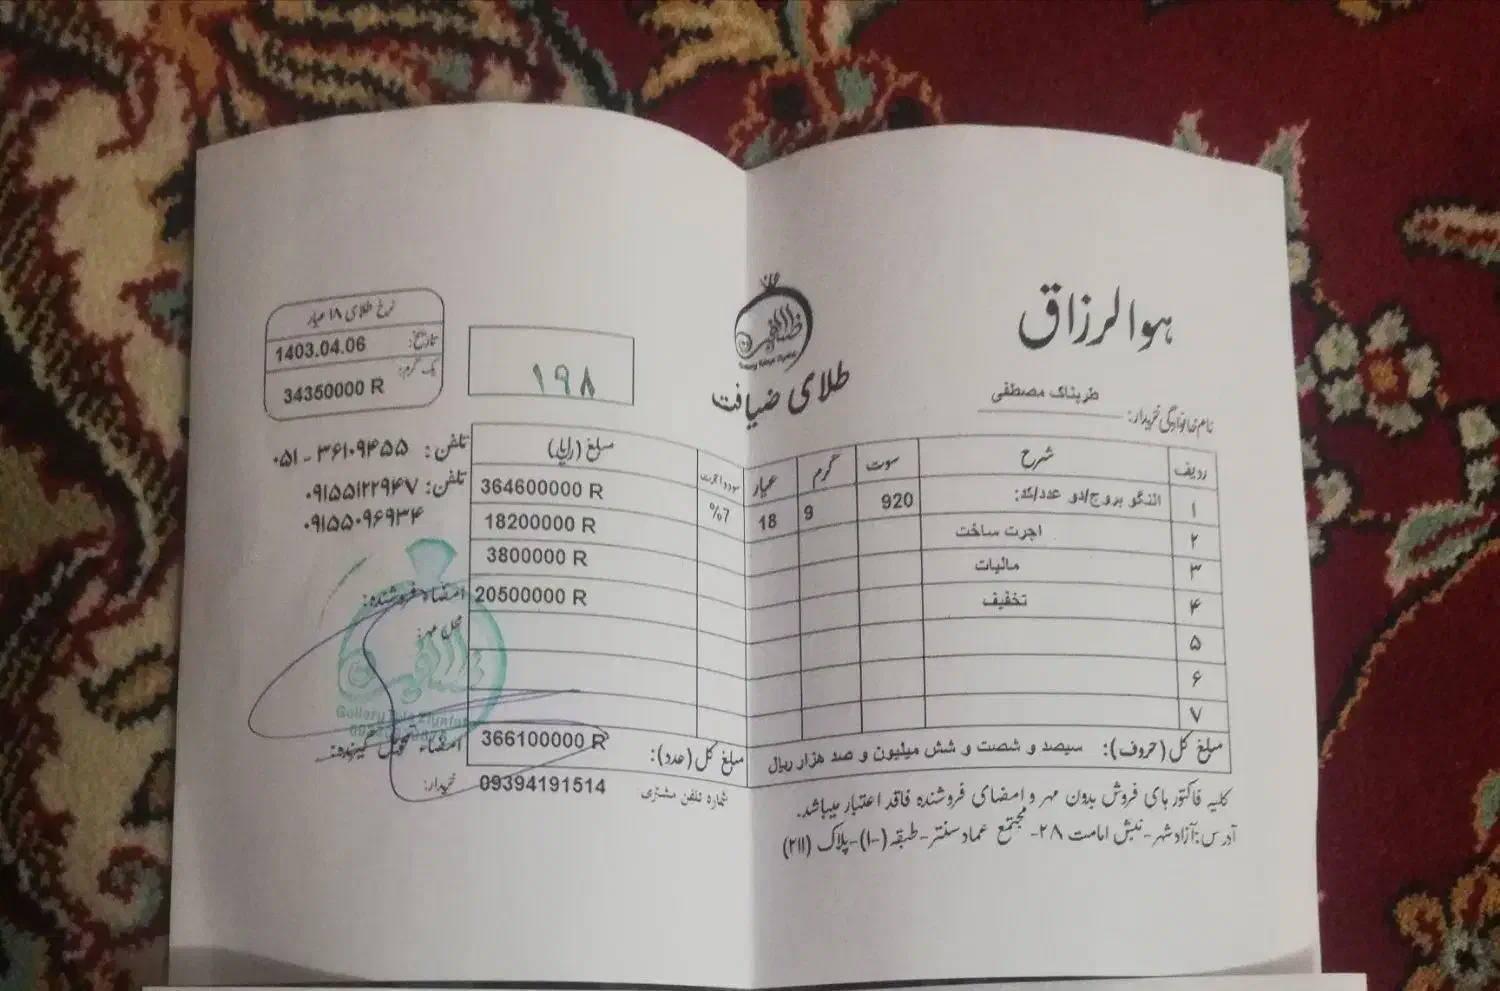 هوالرزاق
طلای ضیافت
۱۹۸
نرخ طلای ۱۸ عیار
تاریخ: 1403.04.06
یک گرم: 34350000 R
نام خانوادگی خریدار: طربناک مصطفی
تلفن: ۳۶۱۰۹۴۵۵ - ۰۵۱
تلفن: ۰۹۱۵۵۱۲۲۹۴۷
۰۹۱۵۵۰۹۶۹۳۴
ردیف شرح سوت گرم عیار سود و اجرت مبلغ (ریال)
۱ النگو بروج/دو عدد/کد: 920 9 18 %7 364600000 R
۲ اجرت ساخت 18200000 R
۳ مالیات 3800000 R
۴ تخفیف 20500000 R
۵
۶
۷
امضاء فروشنده:
محل مهر:
Gallery Tala Ziyafat
مبلغ کل (حروف): سیصد و شصت و شش میلیون و صد هزار ریال
مبلغ کل (عدد): 366100000 R
امضاء تحویل گیرنده:
خریدار:
شماره تلفن مشتری 09394191514
کلیه فاکتور های فروش بدون مهر و امضای فروشنده فاقد اعتبار میباشد.
آدرس: آزادشهر-نبش امامت ۲۸-مجتمع عماد سنتر-طبقه (۱-)-پلاک (۲۱۱)